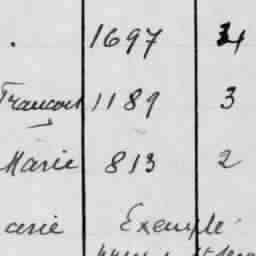 . 1697 4
François 1189 3
Marie 813 2
arie Exemple